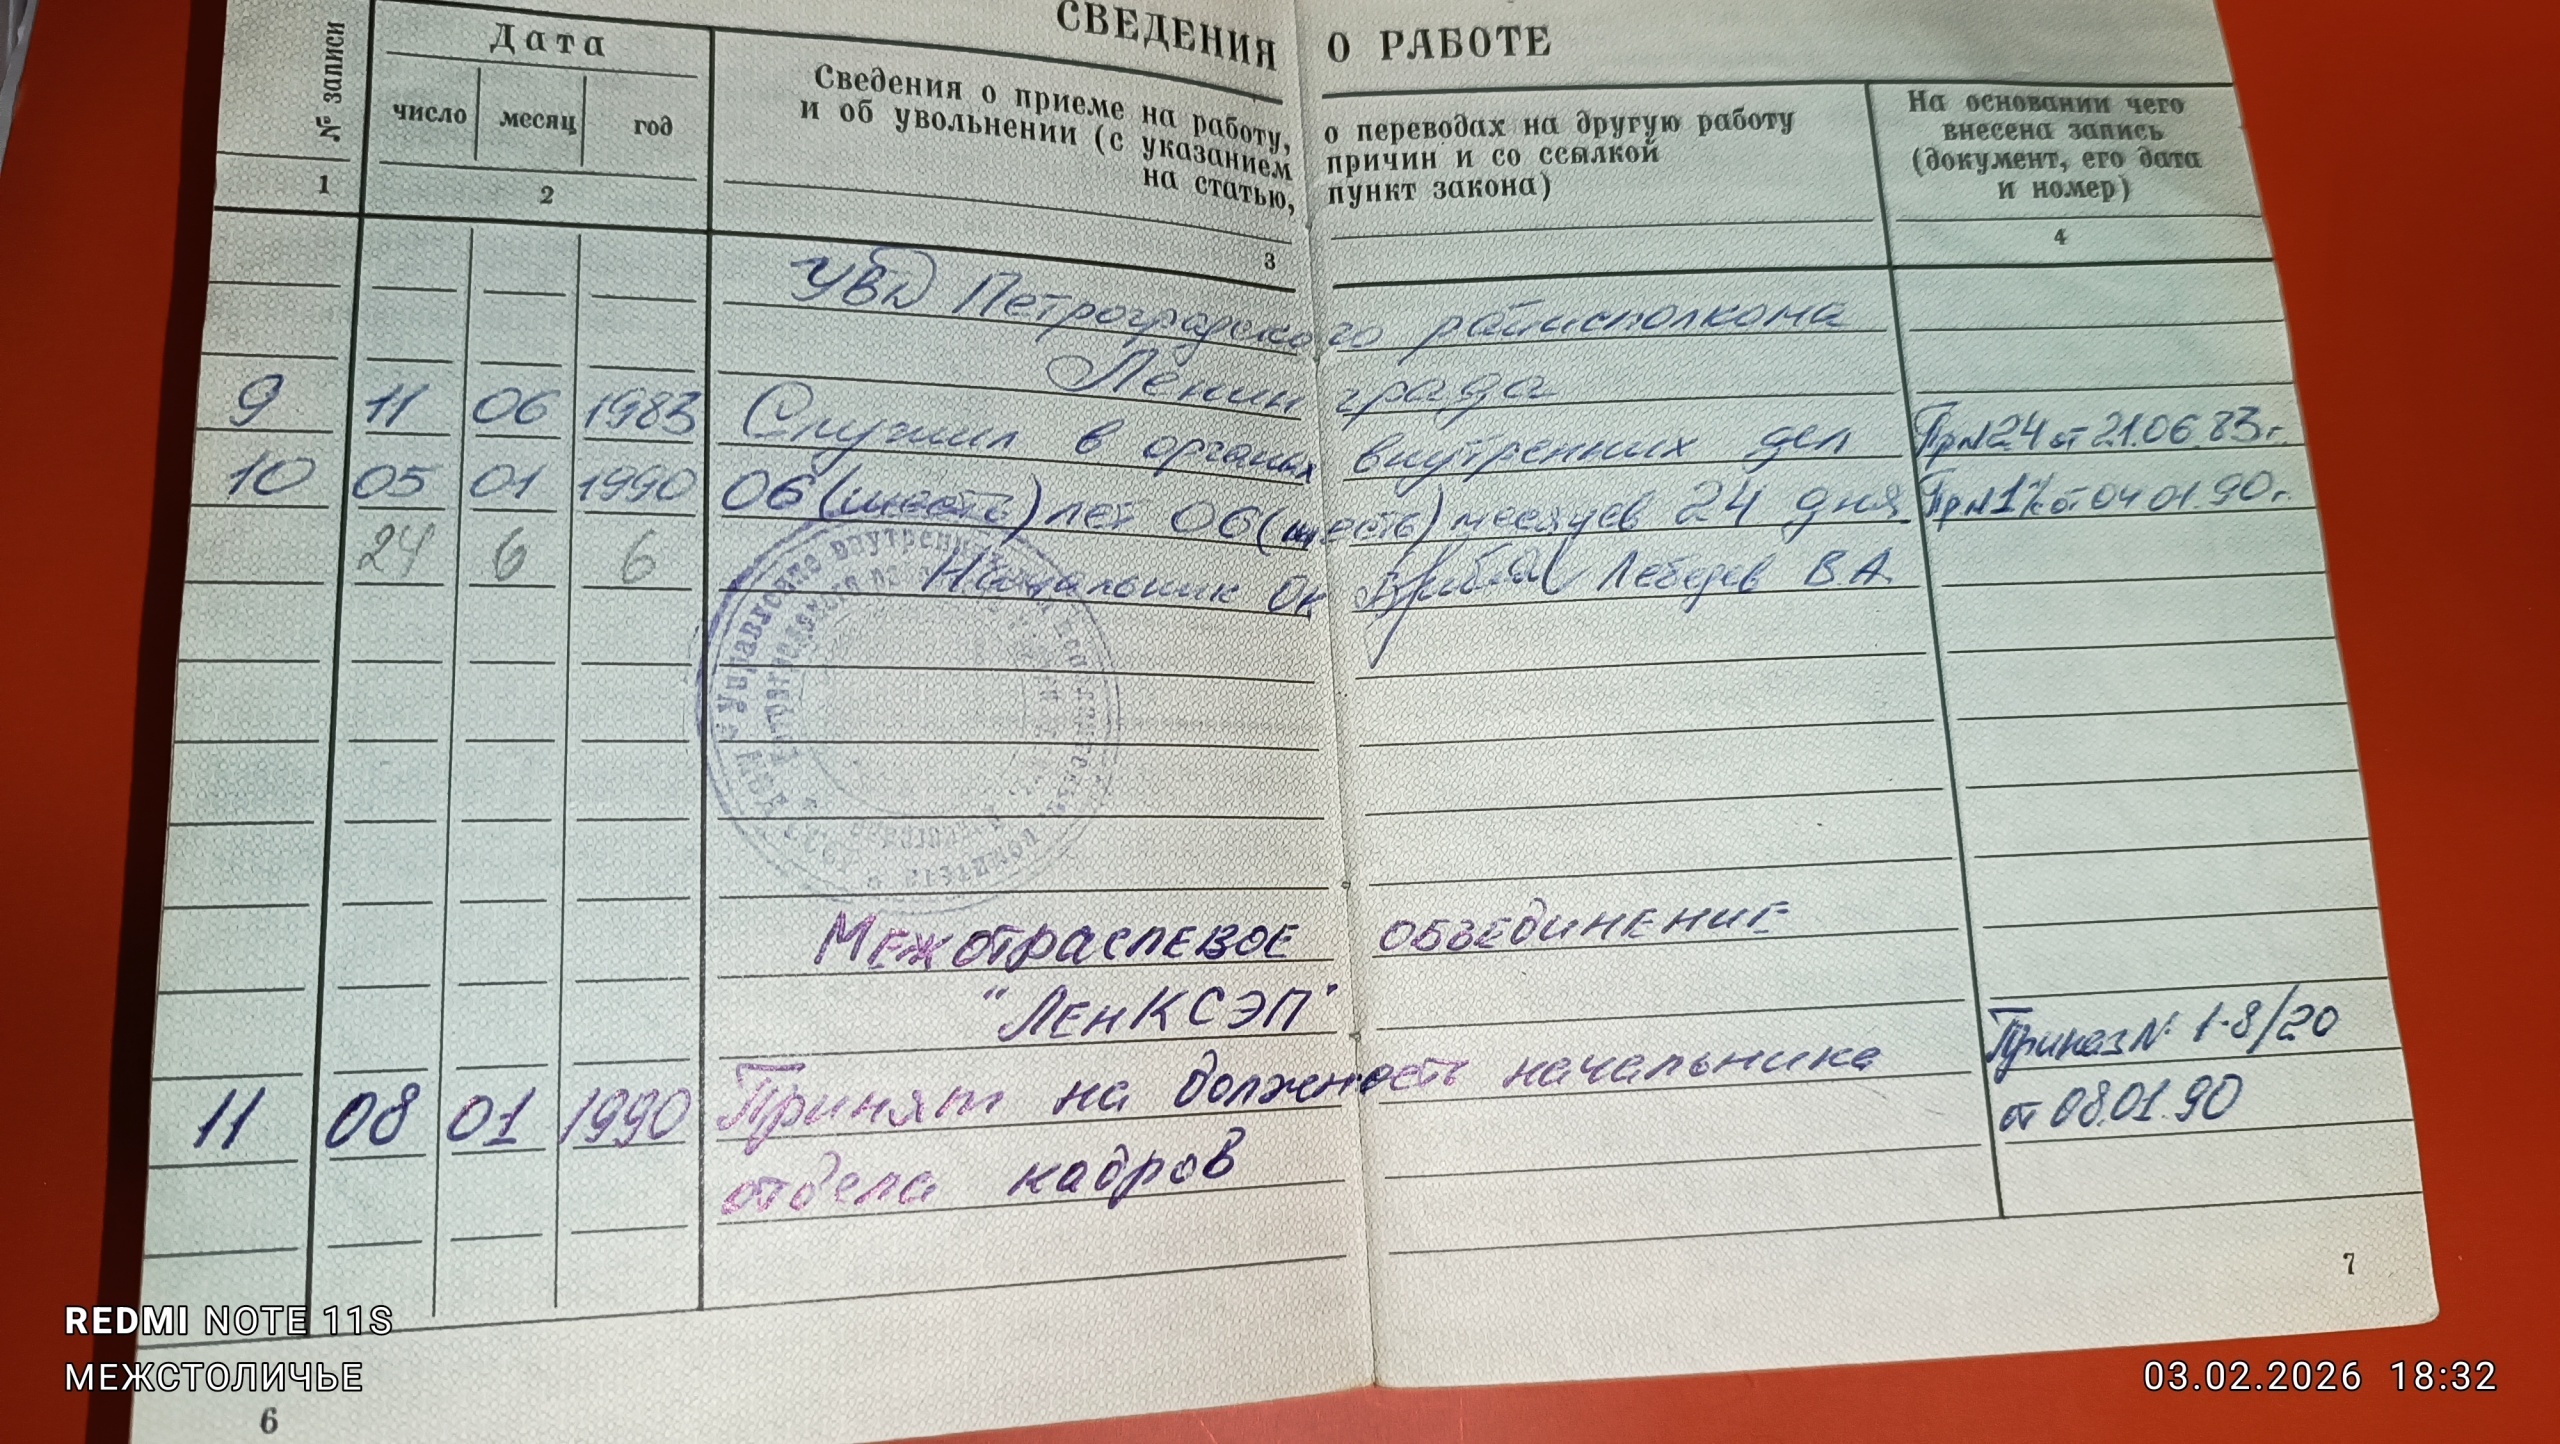 СВЕДЕНИЯ О РАБОТЕ
№ записи
Дата
число месяц год
Сведения о приеме на работу, о переводах на другую работу
и об увольнении (с указанием причин и со ссылкой
на статью, пункт закона)
На основании чего
внесена запись
(документ, его дата
и номер)
1 2 3 4
УВД Петроградского райисполкома
Ленинграда
9 11 06 1983 Служил в органах внутренних дел Пр№24 от 21.06.83г.
10 05 01 1990 06(шесть) лет 06(шесть) месяцев 24 дня от 04.01.90г.
24 6 6 Начальник ОК Лебедев В.А.
Межотраслевое объединение
"ЛенКСЭП"
Приказ № 1-8/20
11 08 01 1990 Принят на должность начальника
от 08.01.90
отдела кадров
7
6
REDMI NOTE 11S
МЕЖСТОЛИЧЬЕ
03.02.2026 18:32